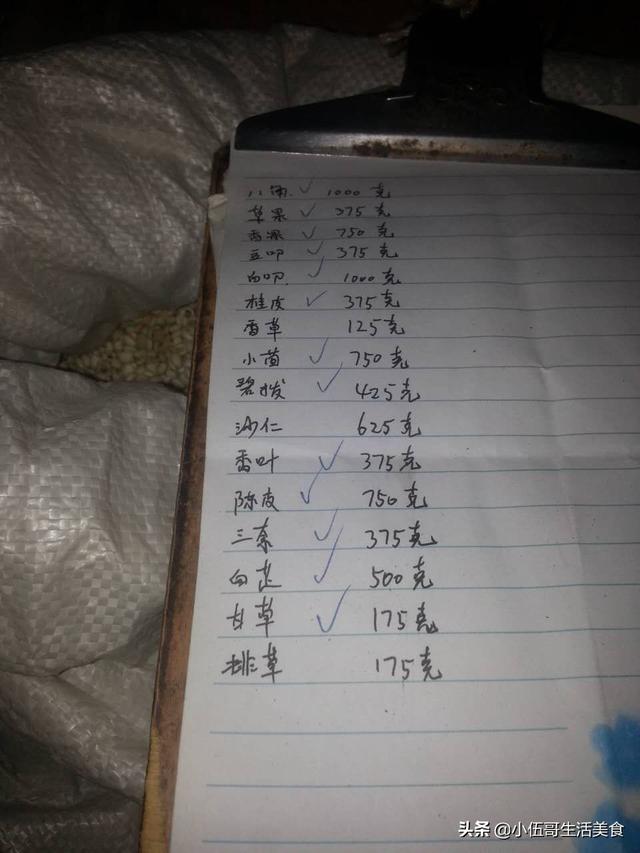 八角 ✓ 1000克
草果 ✓ 375克
香果 ✓ 750克
豆叩 ✓ 375克
白叩 ✓ 1000克
桂皮 ✓ 375克
香草 125克
小茴 ✓ 750克
碧拨 ✓ 425克
沙仁 625克
香叶 ✓ 375克
陈皮 ✓ 750克
三奈 ✓ 375克
白芷 ✓ 500克
甘草 ✓ 175克
排草 175克
头条 @小伍哥生活美食